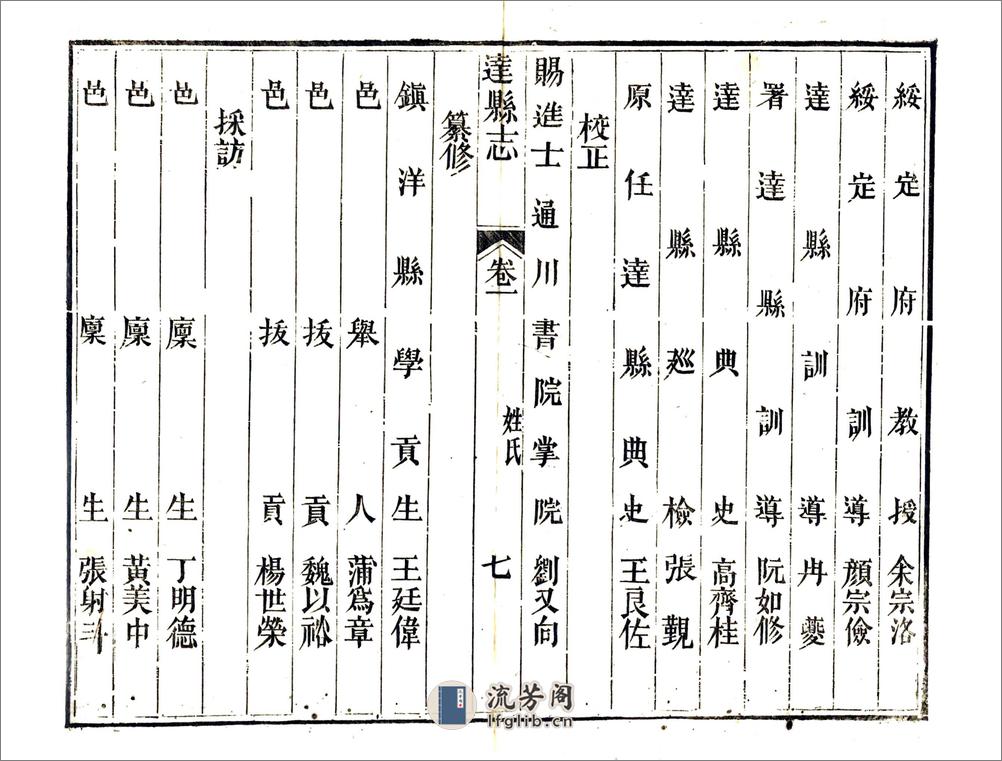 綏定府教授余宗洛
綏定府訓導顏宗儉
達縣訓導冉夔
署達縣訓導阮如修
達縣典史高齊桂
達縣巡檢張觀
原任達縣典史王良佐
校正
賜進士通川書院掌院劉又向
達縣志 卷一 姓氏 七
纂修
鎮洋縣學貢生王廷偉
邑舉人蒲爲章
邑拔貢魏以
邑拔貢楊世榮
採訪
邑廩生丁明德
邑廩生黃美中
邑廩生張射斗
流芳阁
lfglib.cn